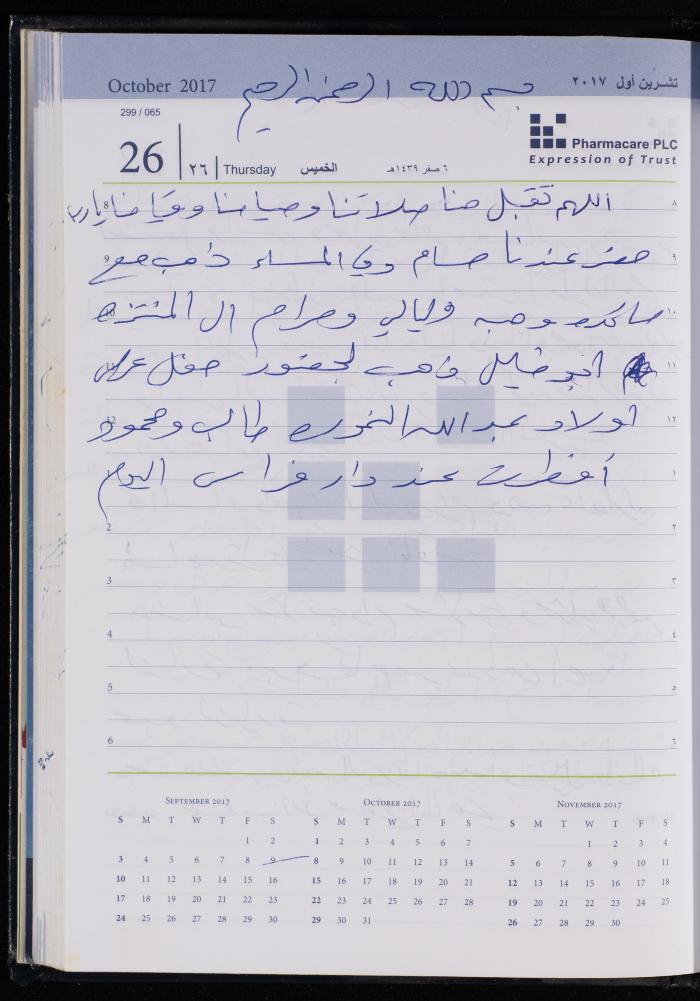 October 2017 بسم الله الرحمن الرحيم تشرين أول ٢٠١٧
299 / 065
26 ٢٦ Thursday الخميس ٦ صفر ١٤٣٩هـ
Pharmacare PLC
Expression of Trust
اللهم تقبل منا صلاتنا وصيامنا وقيامنا يا رب
8 ٨
حضر عندنا حسام وفي المساء ذهب مع
9 ٩
وليالي ومرام ال المنتزه
10 ١٠
ابو خليل ذهب لحضور حفل
11 ١١
اولاد عبد الله طالب ومحمود
12 ١٢
أفطرت عند دار فراس اليوم
1 ١
2 ٢
3 ٣
4 ٤
5 ٥
6 ٦
September 2017
S M T W T F S
1 2
3 4 5 6 7 8 9
10 11 12 13 14 15 16
17 18 19 20 21 22 23
24 25 26 27 28 29 30
October 2017
S M T W T F S
1 2 3 4 5 6 7
8 9 10 11 12 13 14
15 16 17 18 19 20 21
22 23 24 25 26 27 28
29 30 31
November 2017
S M T W T F S
1 2 3 4
5 6 7 8 9 10 11
12 13 14 15 16 17 18
19 20 21 22 23 24 25
26 27 28 29 30